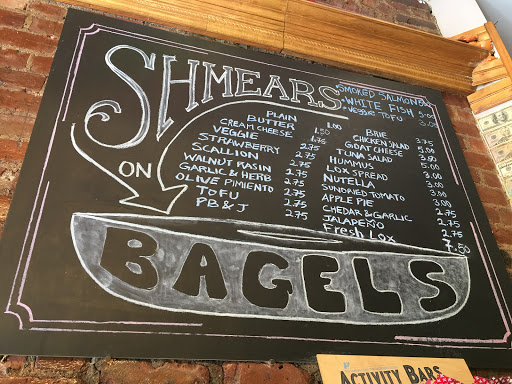 SHMEARS
ON
BAGELS
SMOKED SALMON
WHITE FISH 5.00
VEGGIE TOFU 3.00
PLAIN 1.00
BUTTER 1.50
CREAM CHEESE 1.75
VEGGIE 2.75
STRAWBERRY 2.75
SCALLION 2.75
WALNUT RAISIN 2.75
GARLIC & HERB 2.75
OLIVE PIMIENTO 2.75
TOFU 2.75
PB & J 2.75
BRIE 3.75
CHICKEN SALAD
GOAT CHEESE
TUNA SALAD 5.00
HUMMUS 3.00
LOX SPREAD 3.00
NUTELLA 3.00
SUNDRIED TOMATO 3.00
APPLE PIE 2.75
CHEDAR & GARLIC 2.75
JALAPEÑO 2.75
Fresh Lox 7.50
ACTIVITY BARS